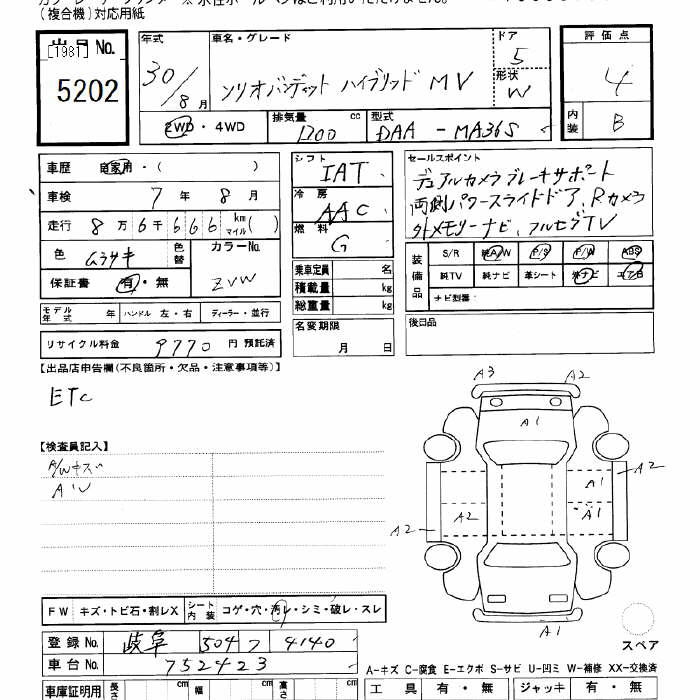 (複合機)対応用紙
出品 No. [1981]
5202
年式 30/8月
車名・グレード ソリオバンディット ハイブリッド MV
ドア 5
形状 W
評価点 4
内装 B
2WD・4WD
排気量 1200 cc
型式 DAA - MA36S
車歴 自家用・( )
車検 7年 8月
走行 8万6千666 km マイル( )
色 ムラサキ 色替
カラーNo. ZVW
保証書 有・無
モデル年式 年 ハンドル 左・右 ディーラー・並行
リサイクル料金 9770 円 預託済
シフト IAT
冷房 AAC
燃料 G
乗車定員 名
積載量 kg
総重量 kg
名変期限 月 日
セールスポイント
デュアルカメラブレーキサポート
両側パワースライドドア、Rカメラ
外メモリーナビ、フルセグTV
装備品 S/R 純A/W P/S P/W ABS
純TV 純ナビ 革シート 外ナビ エアB
ナビ型番:
後日品
【出品店申告欄(不良箇所・欠品・注意事項等)】
ETC
【検査員記入】
A/Wキズ
A1V
A3 A2
A1
A2
A1
A2 A1
A2
A1
スペア
FW キズ・トビ石・割レX シート内装 コゲ・穴・汚レ・シミ・破レ・スレ
登録 No. 岐阜 504 フ 4140
車台 No. 752423
車庫証明用 長さ cm 幅 cm 高さ cm
A-キズ C-腐食 E-エクボ S-サビ U-凹ミ W-補修 XX-交換済
工具 有・無 ジャッキ 有・無